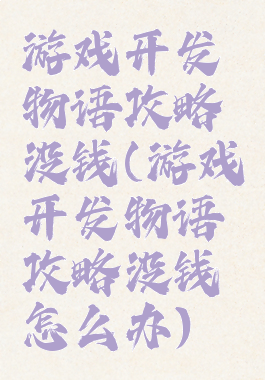 游戏开发
物语攻略
没钱(游戏
开发物语
攻略没钱
怎么办)